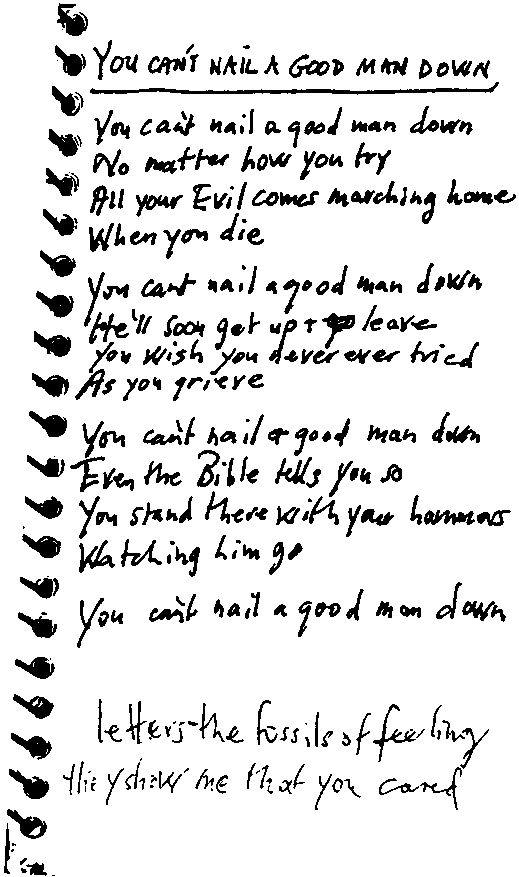 YOU CAN'T NAIL A GOOD MAN DOWN
You can't nail a good man down
No matter how you try
All your Evil comes marching home
When you die
You cant nail a good man down
He'll soon get up + leave
You wish you never ever tried
As you grieve
You can't nail a good man down
Even the Bible tells you so
You stand there with your hammers
Watching him go
You can't nail a good man down
letters-the fossils of feeling
they show me that you cared